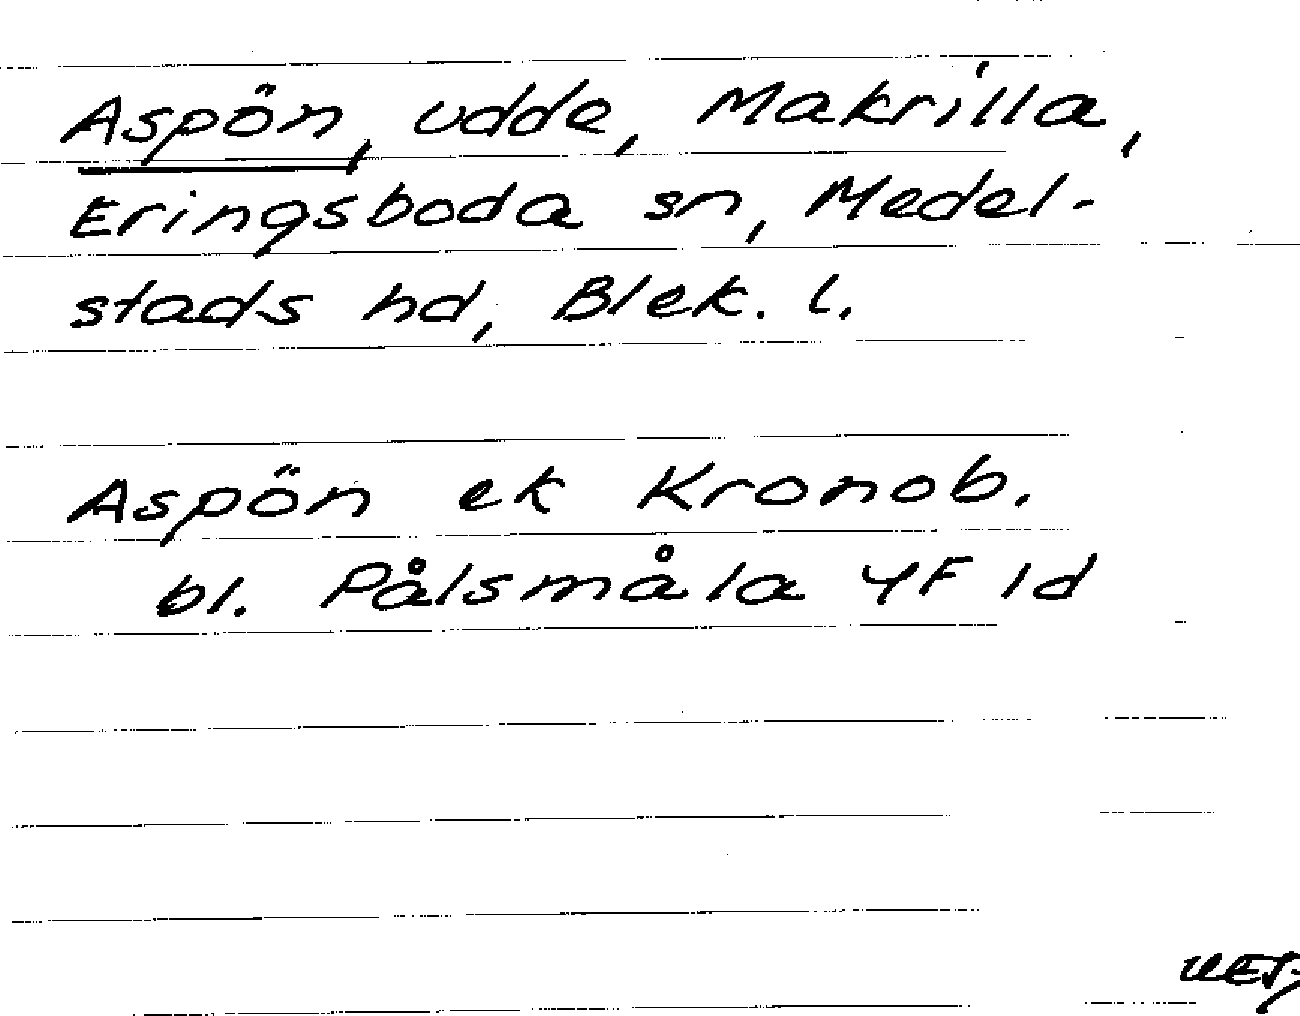 Aspön, udde, Makrilla,
Eringsboda sn, Medel-
stads hd, Blek. l.
Aspön ek Kronob.
bl. Pålsmåla 4F 1d